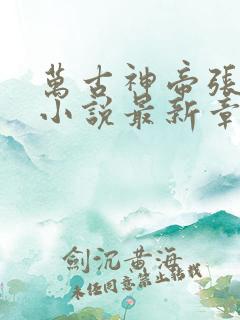 萬古神帝張
小說最新章
劍沉黃海
未經同意禁止轉載